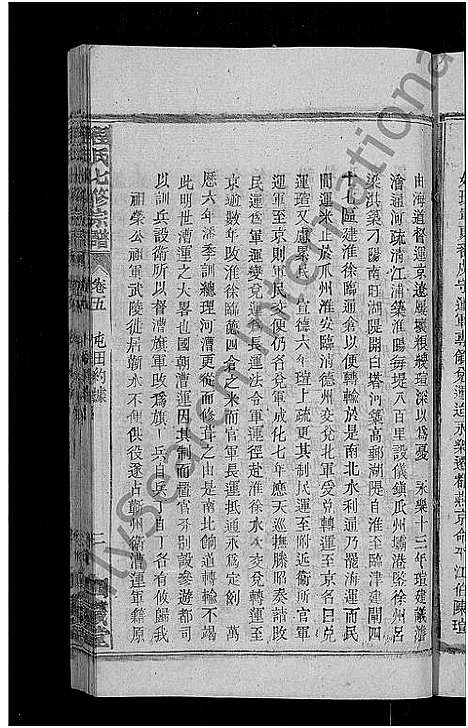 由海道督運京遼屢壞粮艘瑄深以為憂 永樂十三年瑄建議濬
滄通河疏清江浦築淮陽每堤八百里設儀鎮瓜州壩港堅徐州呂
梁洪築刁陽南旺湖隄開白塔河築高郵湖隄自淮至臨津建閘四
十七區建淮徐臨通倉以便轉輸於是南北水利通乃罷海運而民
間運米貯於瓜州淮安臨清德州交兌北軍受兌轉運至京名曰兌
運瑄又慮累民 宣德六年瑄上疏更其制民運至附近衛所官軍
運軍至京則軍民次便仍名兌軍成化七年應天巡撫滕昭奏請敗
民運俱為軍運變兌運曰長運法令軍運徑赴淮徐水次交兌轉運
京逾數年改淮徐臨德四倉之米而官軍長運抵通永為定制 萬
歷六年潘季訓總理河漕更而修葺之由是南北餉道轉輸不竭
此明世漕運之大畧也國朝漕運因其制而置官不別設參遊都司
以訓兵設衛所以督漕旗軍改為旗丁兵自兵丁自丁各有攸歸我
祖榮公裥軍武陵徙居蘄水不俱俱役遂占蘄州衛漕運軍籍原
程氏七修宗譜
卷五
屯田約據
二